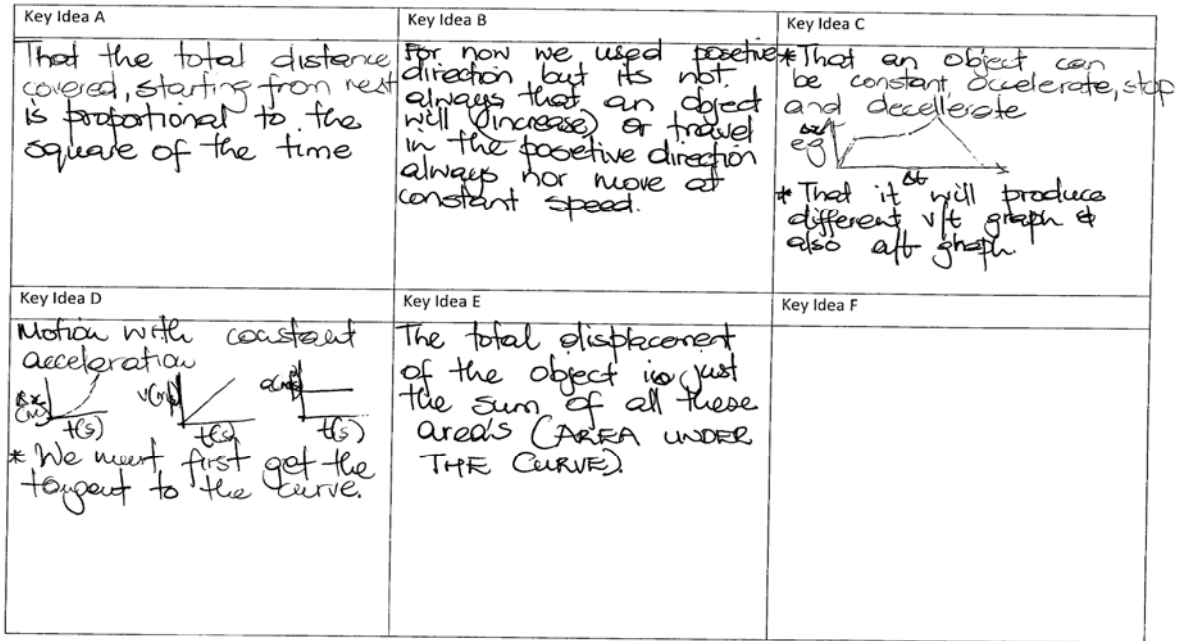 Key Idea A
That the total distance
covered, starting from rest
is proportional to the
square of the time
Key Idea B
For now we used posetive
direction, but its not
always that an object
will (increase) or travel
in the posetive direction
always nor move at
constant speed.
Key Idea C
* That an object can
be constant, accelerate, stop
and decellerate
eg
Δx
Δt
* That it will produce
different v/t graph &
also a/t graph.
Key Idea D
Motion with constant
acceleration
Δx
(m)
t(s)
t(s)
t(s)
* We must first get the
tangent to the curve.
Key Idea E
The total displacement
of the object is just
the sum of all these
area's (AREA UNDER
THE CURVE).
Key Idea F